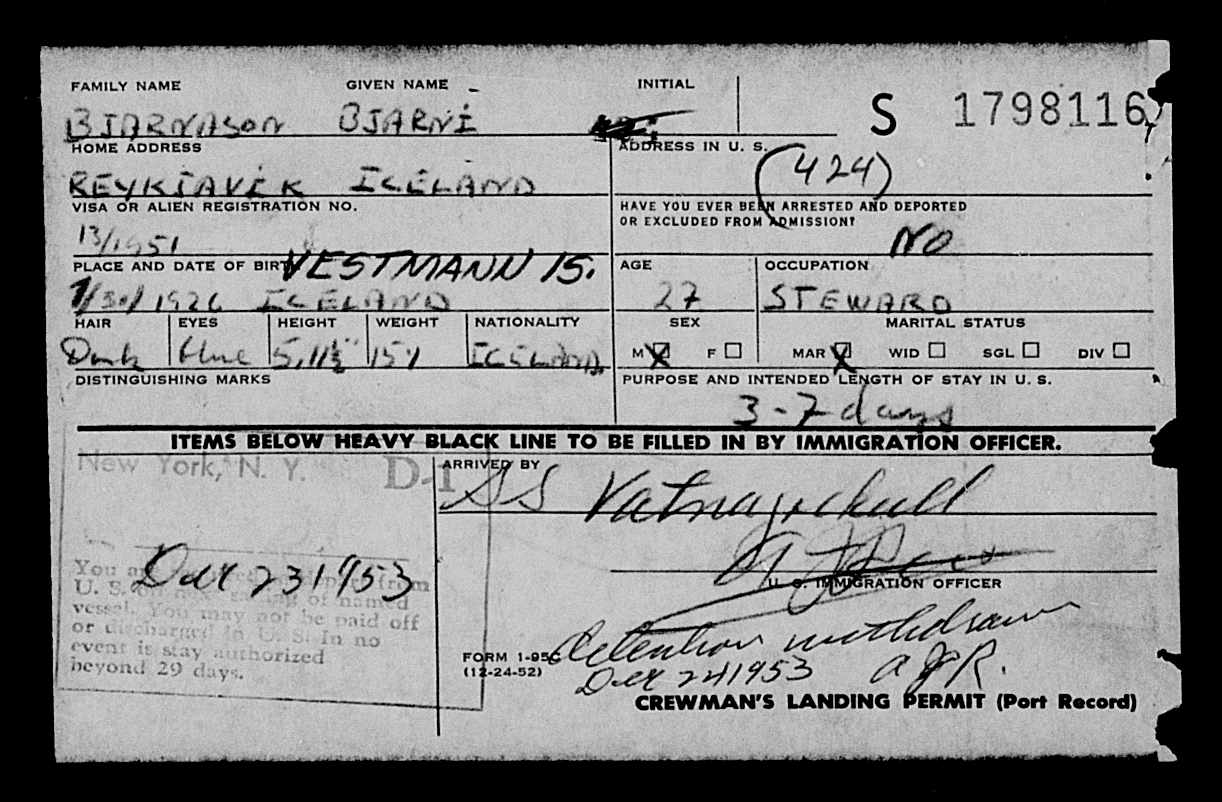 FAMILY NAME GIVEN NAME INITIAL
BJARNASON BJARNI S 1798116
HOME ADDRESS ADDRESS IN U. S.
REYKJAVIK ICELAND (424)
VISA OR ALIEN REGISTRATION NO. HAVE YOU EVER BEEN ARRESTED AND DEPORTED
OR EXCLUDED FROM ADMISSION?
13/1951 NO
PLACE AND DATE OF BIRTH VESTMANN IS. AGE OCCUPATION
1/30/1926 ICELAND 27 STEWARD
HAIR EYES HEIGHT WEIGHT NATIONALITY SEX MARITAL STATUS
Dark blue 5,11½" 151 ICELAND. M X F MAR X WID SGL DIV
DISTINGUISHING MARKS PURPOSE AND INTENDED LENGTH OF STAY IN U. S.
3-7 days
ITEMS BELOW HEAVY BLACK LINE TO BE FILLED IN BY IMMIGRATION OFFICER.
New York, N. Y. D-1 ARRIVED BY
SS Vatnajokull
Dec 23 1953
U. S. IMMIGRATION OFFICER
You are from
U. S. on of named
vessel. You may not be paid off
or discharged in U. S. In no
event is stay authorized
beyond 29 days.
Detention withdrawn
FORM I-95C
(12-24-52)
Dec 24 1953 AJR.
CREWMAN'S LANDING PERMIT (Port Record)